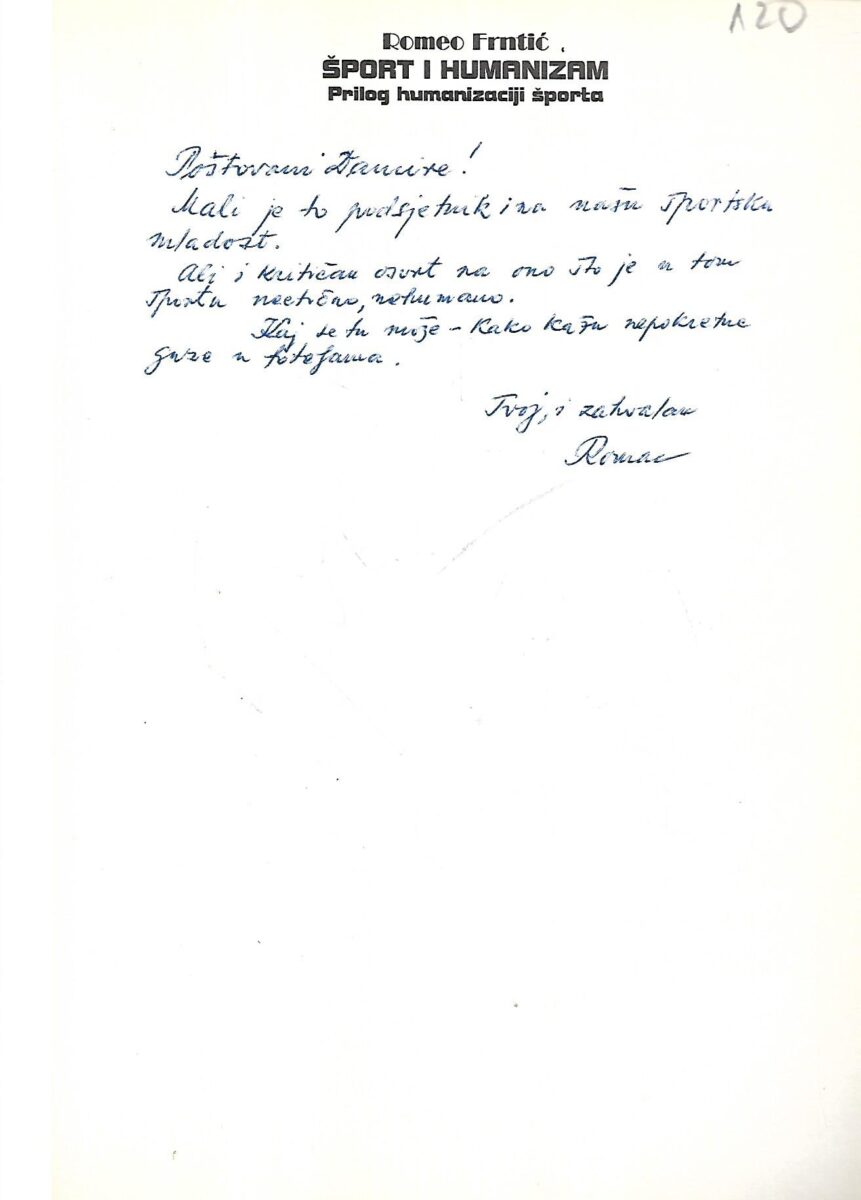 120
Romeo Frntić
ŠPORT I HUMANIZAM
Prilog humanizaciji športa
Poštovani Damire!
Mali je to podsjetnik i na našu sportsku
mladost.
Ali i kritičan osvrt na ono što je u tom
sportu neetično, nehumano.
Kaj se tu može – kako kažu nepokretne
guze u foteljama.
Tvoj, i zahvalan